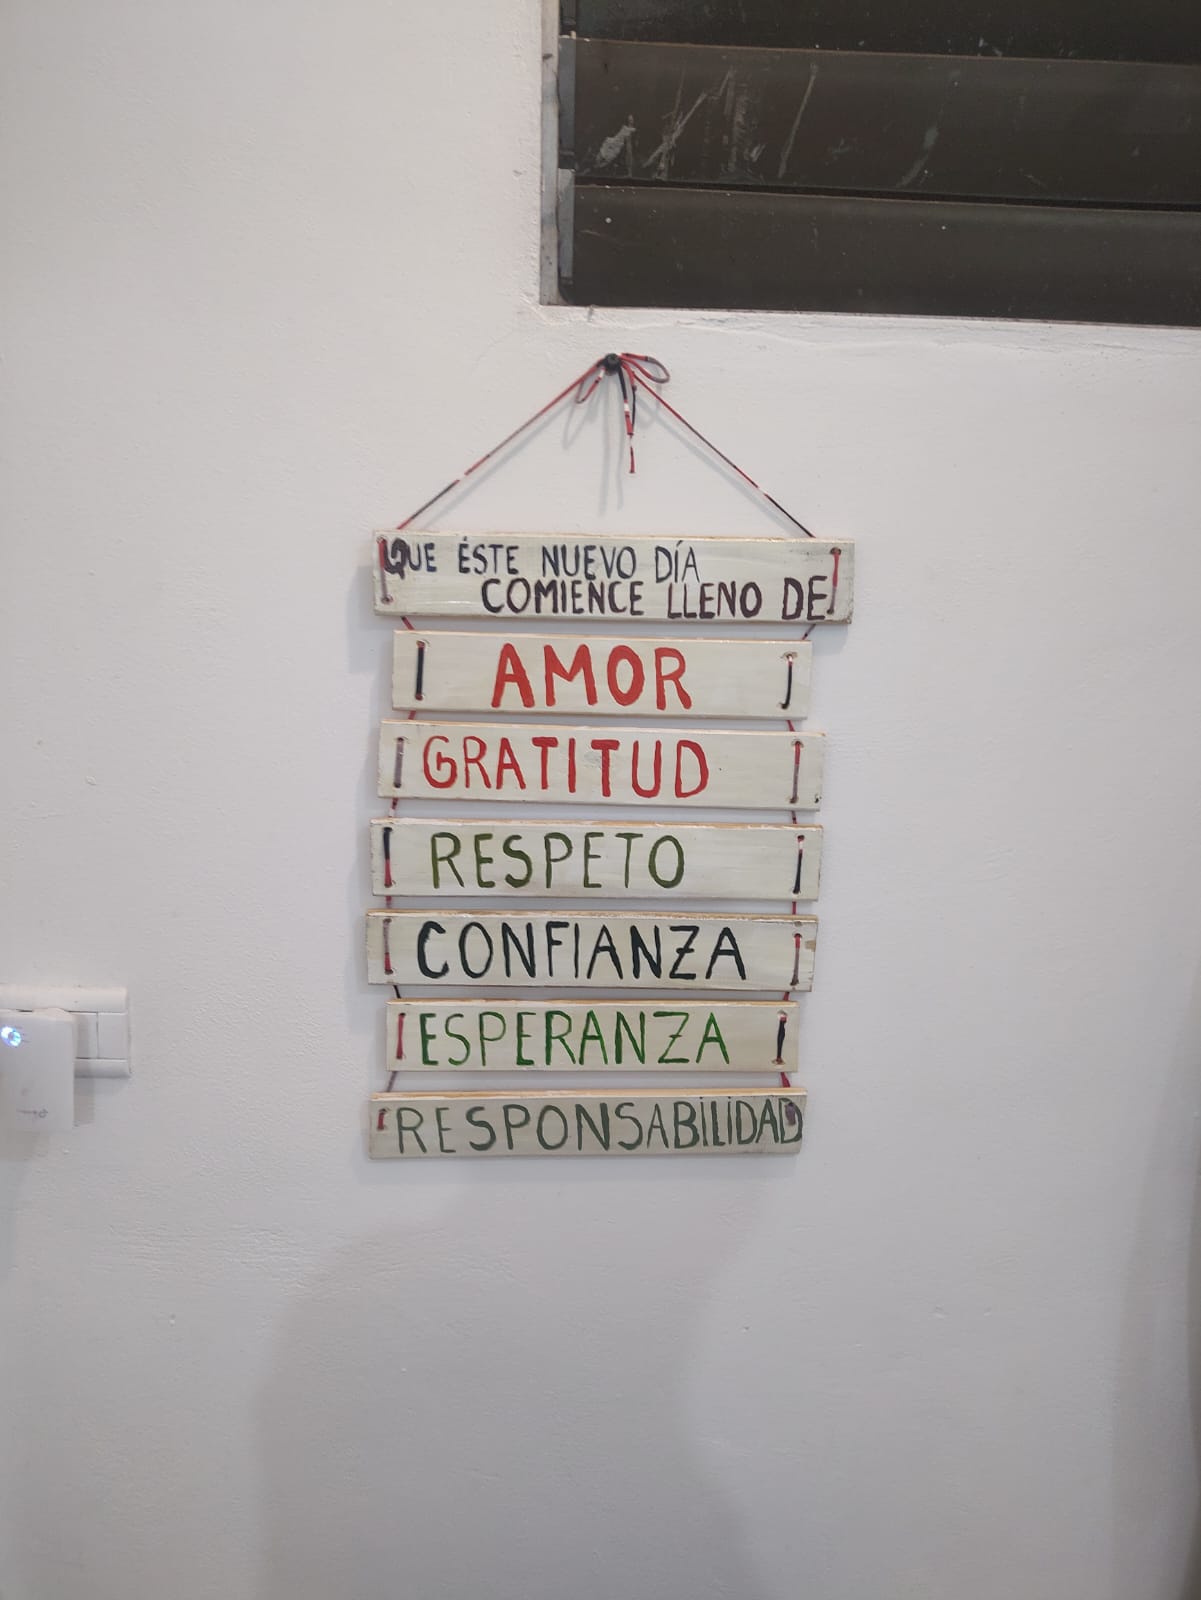 QUE ÉSTE NUEVO DÍA
COMIENCE LLENO DE
AMOR
GRATITUD
RESPETO
CONFIANZA
ESPERANZA
RESPONSABILIDAD